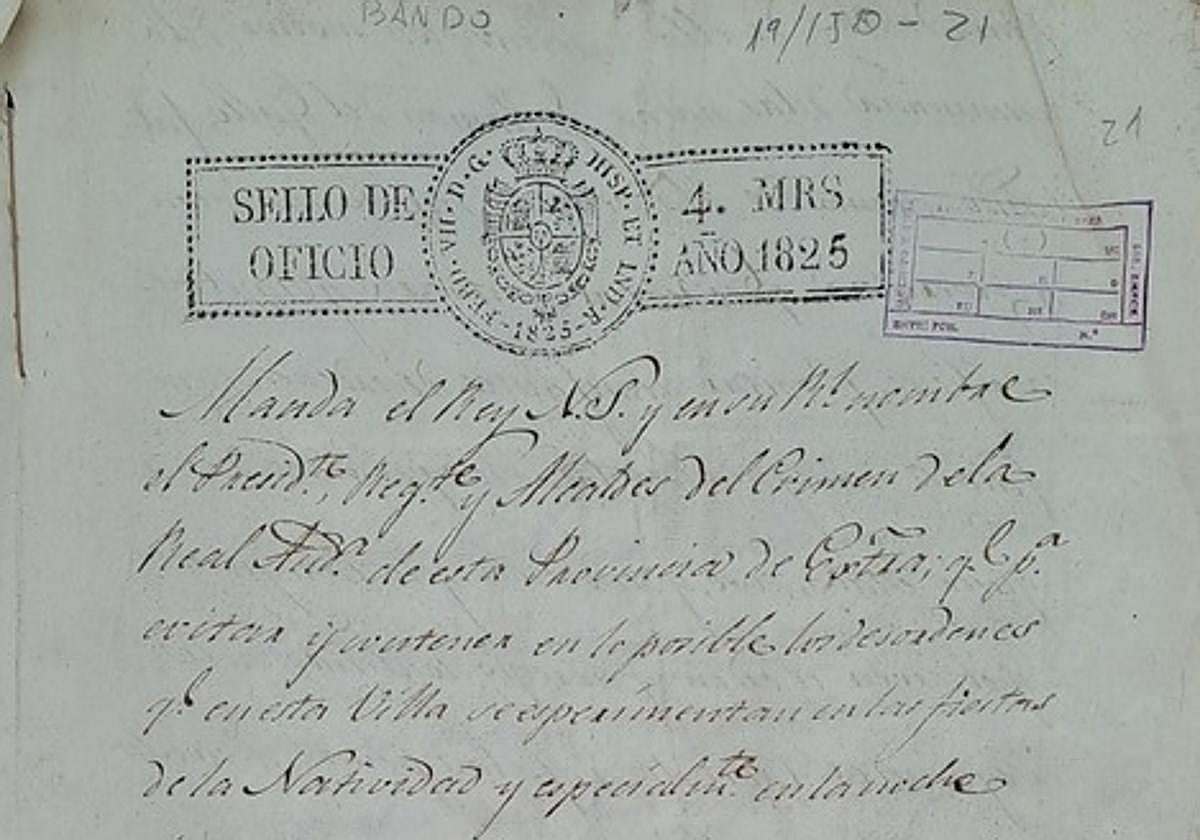 BANDO
19/150-21
21
SELLO DE
OFICIO
FERD·VII·D·G·HISP·ET IND·R·
·1825·
4. MRS
AÑO 1825
Nº
Manda el Rey N.S. y en su Rl. nombre
el Presidte., Regte. y Alcaldes del Crimen de la
Real Auda. de esta Provincia de Extrã, q.e pa.
evitar y contener en lo posible los desordenes
q.e en esta Villa se esperimentan en las fiestas
de la Natividad y especialmte. en la noche